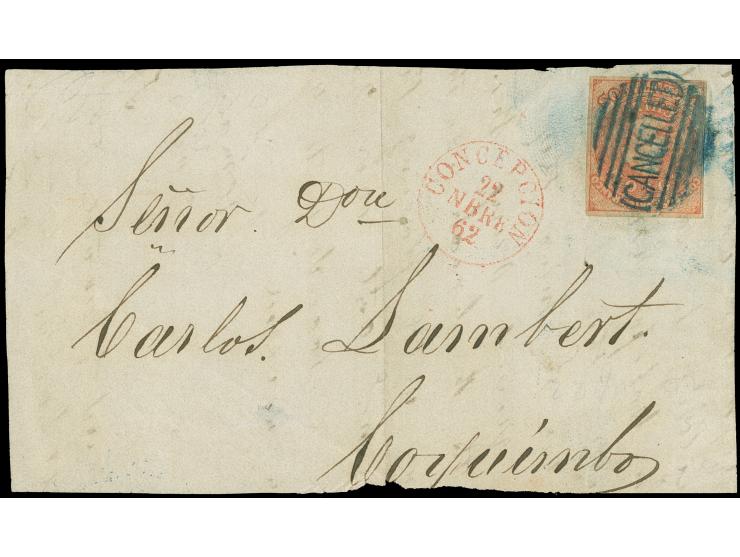 CONCEPCION
22
NBRE
62
CANCELLED
Señor Don
Carlos Lambert.
Coquimbo